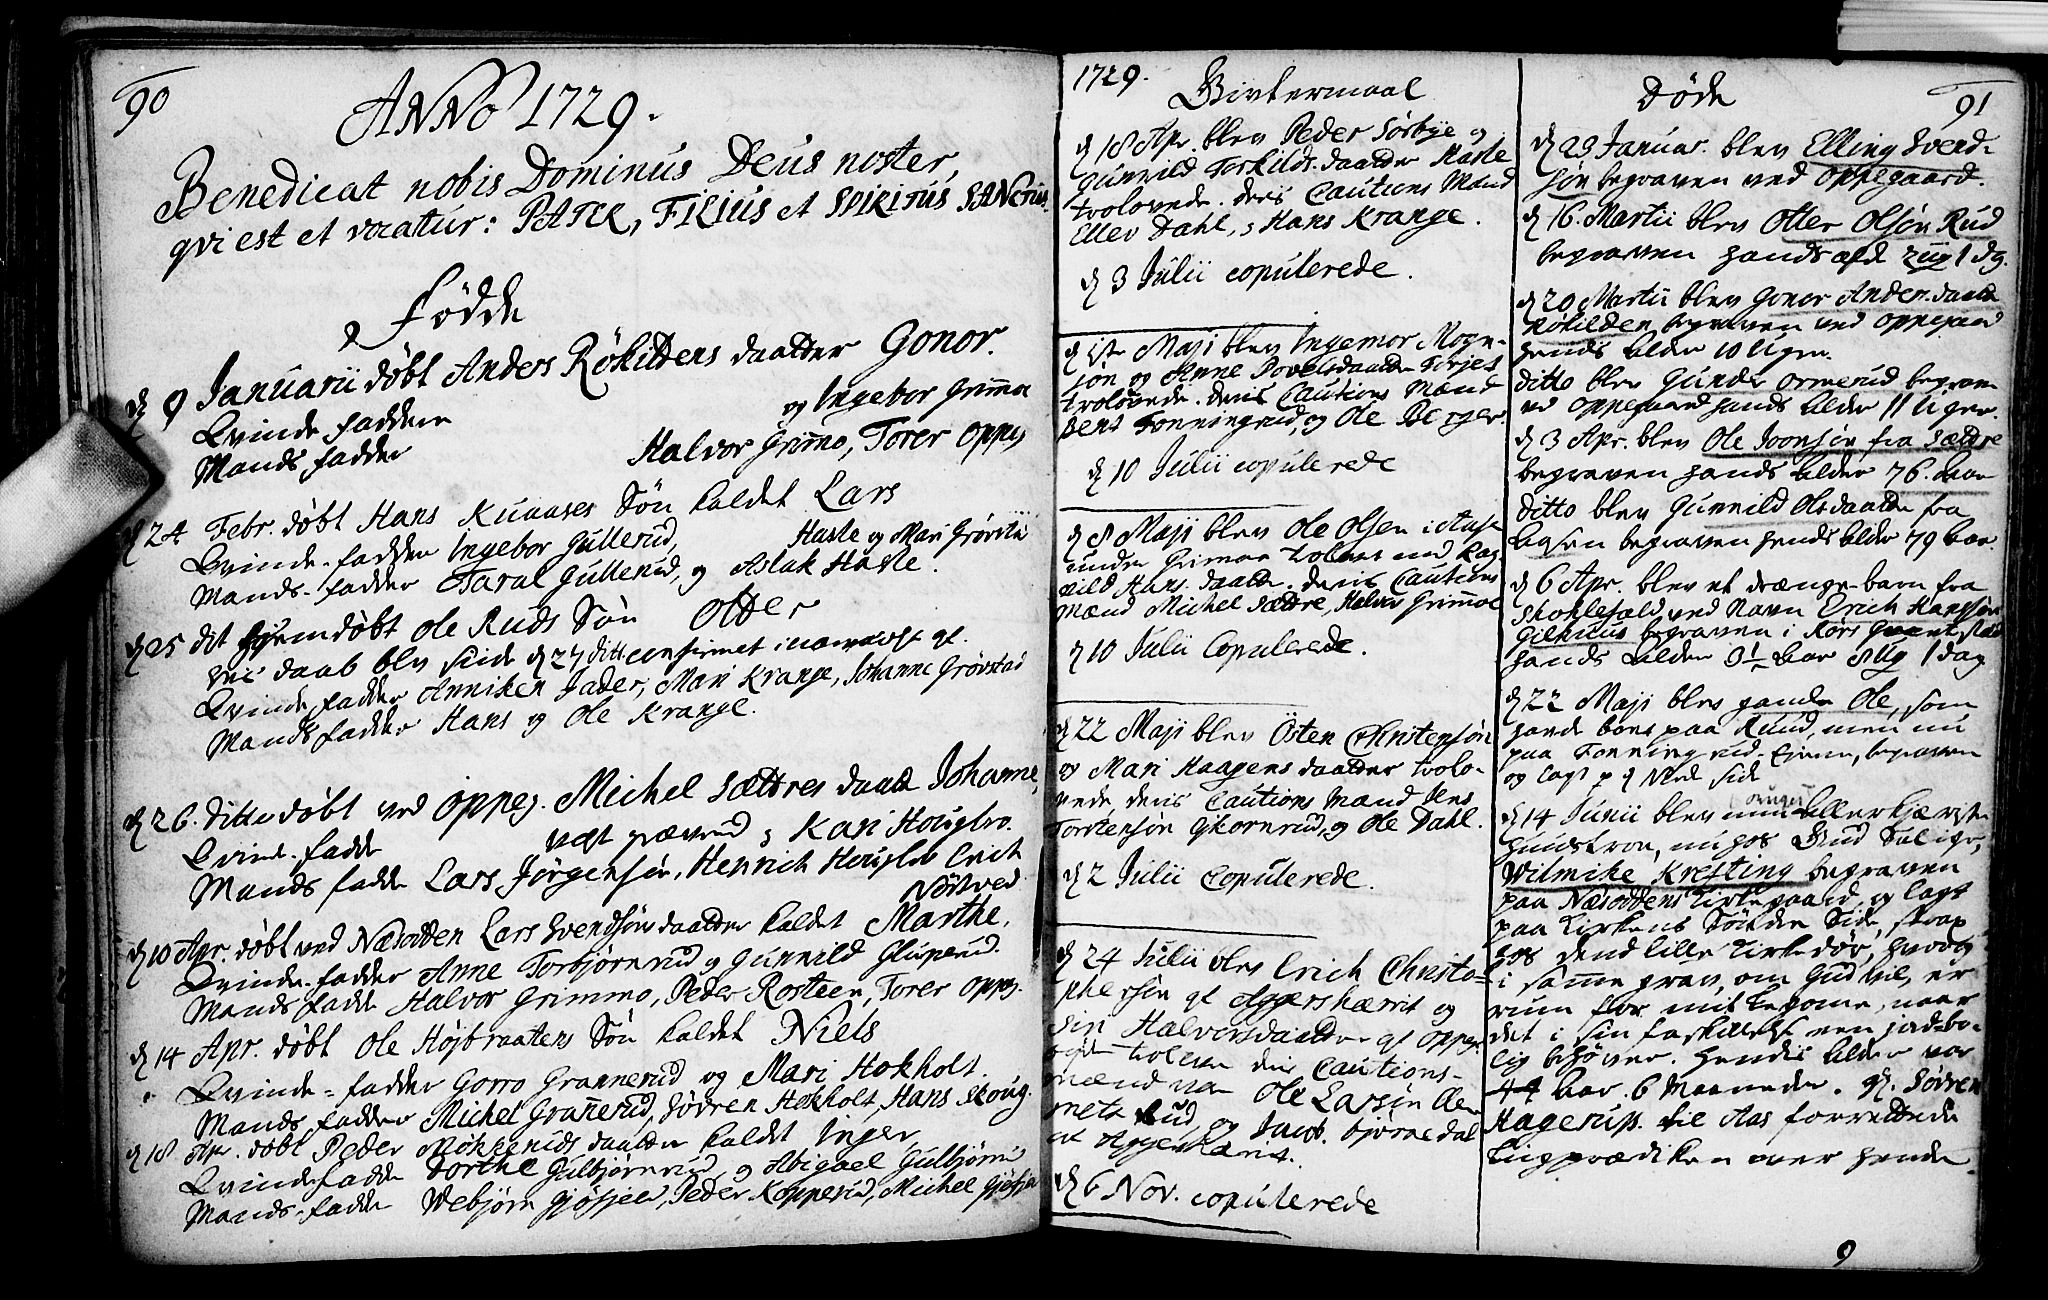 90
ANNO 1729.
Benedicat nobis Dominus Deus noster,
qvi est et vocatur: PATER, FILIUS et SPIRITUS SANCTUS.
Födde
d 9 Januarii döbt Anders Rökildens daatter Gonor.
Qvinde faddere og Ingebor Grimmo
Mands fadder Halvor Grimo, Torer Oppeg
d 24 Febr. döbt Hans Kuaases Sön kaldet Lars
Qvinde-fadder Ingebor Gullerud, Hasle og Mari Grövsta
Mands-fadder Taral Gullerud, og Aslak Hasle.
d 25 det hjemdöbt Ole Ruds Sön Otter
daab blev siden d 27 ditt confirmet
Qvinde fadder Anniken Jader, Mari Krange, Johanne Grövstad
Mands fadder Hans og Ole Krange.
d 26. ditto döbt ved Oppeg. Michel Sættres daatt Johanne,
Qvind-fadd og Kari Houglro.
Mands fadde Lars Jörgensön, Henrich Houglro Erich
Nöstved
d 10 Apr. döbt ved Næsodden Lars Svendsöns daatter kaldet Marthe,
Qvinde-fadder Anne Torbjörnrud og Gunnild Gluperud.
Mands fadd Halvor Grimmo, Peder Rosteen, Torer Oppeg.
d 14 Apr. döbt Ole Höjbraatens Sön kaldet Niels
Qvinde-fadder Gorro Grannerud og Mari Hokholt.
Mands fadder Michel Grannerud, Södren Hokholt, Hans Skoug.
d 18 Apr. döbt Peder Mökkeruds daatter kaldet Inger,
Qvinde fadde Dorthe Gulbjörnrud, og Abigael Gulbjörn
Mands-fadde Webjörn Gjöfjeld, Peder Kopperud, Michel Gjöfje
1729.
Givtermaal
d 18 Apr. blev Peder Sörbye og
Gunnild Torkilds.daatter Hasle
trolovede. deris Cautions Mænd
Ellev Dahl, og Hans Krange.
d 3 Julii copulerede.
d 1ste Maji blev Ingemor Mogn-
sön og Anne Povelsdaatter Torjes
trolovede. deris Cautions Mænd
Bent Tonningrud, og Ole Berger.
d 10 Julii copulerede
d 8 Maji blev Ole Olsen i
under Grimmo trolovet med Rag
nild Hans.daatter. deris Cautions
mænd Michel Sættre, Halvor Grimmo
d 10 Julii Copulerede.
d 22 Maji blev Östen Christensön
og Mari Haagensdaatter trolo-
vede, deris Cautions Mænd Jens
Torstensön Skornrud, og Ole Dahl.
d 2 Julii Copulerede.
d 24 Julii blev Erich Christo-
phersön af Aggershærrit og
Siri Halvorsdaatter af Oppe
trolovede deris Cautions-
mænd var Ole Larsön
Rud, og Jacob. Björnedal
af Aggershærrit.
d 6 Nov. copulerede
Döde
91
d 23 Januar. blev Elling Svend-
sön begraven ved Oppegaard.
d 16. Martii blev Otter Olsön Rud
begraven hands ald 2 ug 1 dg.
d 20 Martii blev Gonor Anders.daatt
Rökilden begraven ved Oppegaard
hends Alder 10 Uger.
Ditto blev Gunder Ormerud begrav
ved Oppegaard hands Alder 11 Uger.
d 3 Apr. blev Ole Joonsön fra Sættre
begraven hands Alder 76. Aar
Ditto blev Gunnild Olsdaatter fra
Aasen begraven hends Alder 79 Aar
d 6 Apr. blev et drænge-barn fra
Skoklefald ved Navn Erich Hansön
Gilhuus begraven i
hands Alder 3/4 Aar 8 Ug 1 dag
d 22 Maji blev gamle Ole, som
havde boet paa Ruud, men nu
paa Tonningrud Ejeren, begraven
og lagt p d Nord side
d 14 Junii blev min Allerkjæriste
Hustroe, nu hos Gud Salige,
Wilmike Kresting begraven
paa Næsoddens Kirkegaard, og lagt
paa Kirkens Söndre Side, strax
hos dend lille Kirkedör, hvor og
i samme grav, om Gud vil, er
rum for mit Legome, naar
det i sin
lig behöver. hendis Alder var
44 Aar. 6 Maaneder. Hr. Södren
Hagerup. til Aas forrettede
Liigprædiken over hende.
9